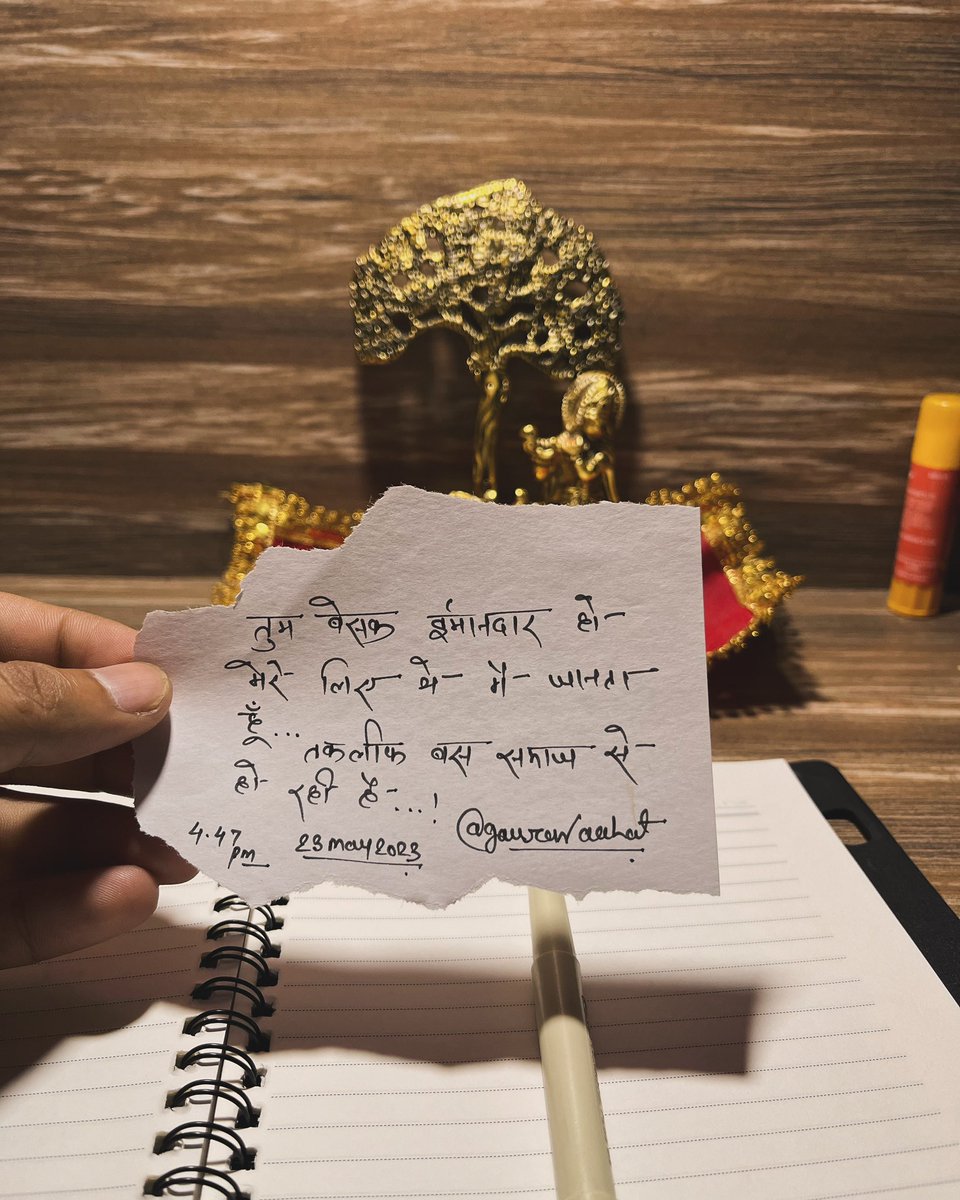 तुम बेसक ईमानदार हो
मेरे लिए ये मैं जानता
हूँ...
तकलीफ बस समाज से
हो रही है...!
4.47 pm 23 May 2023 @gauravraahat